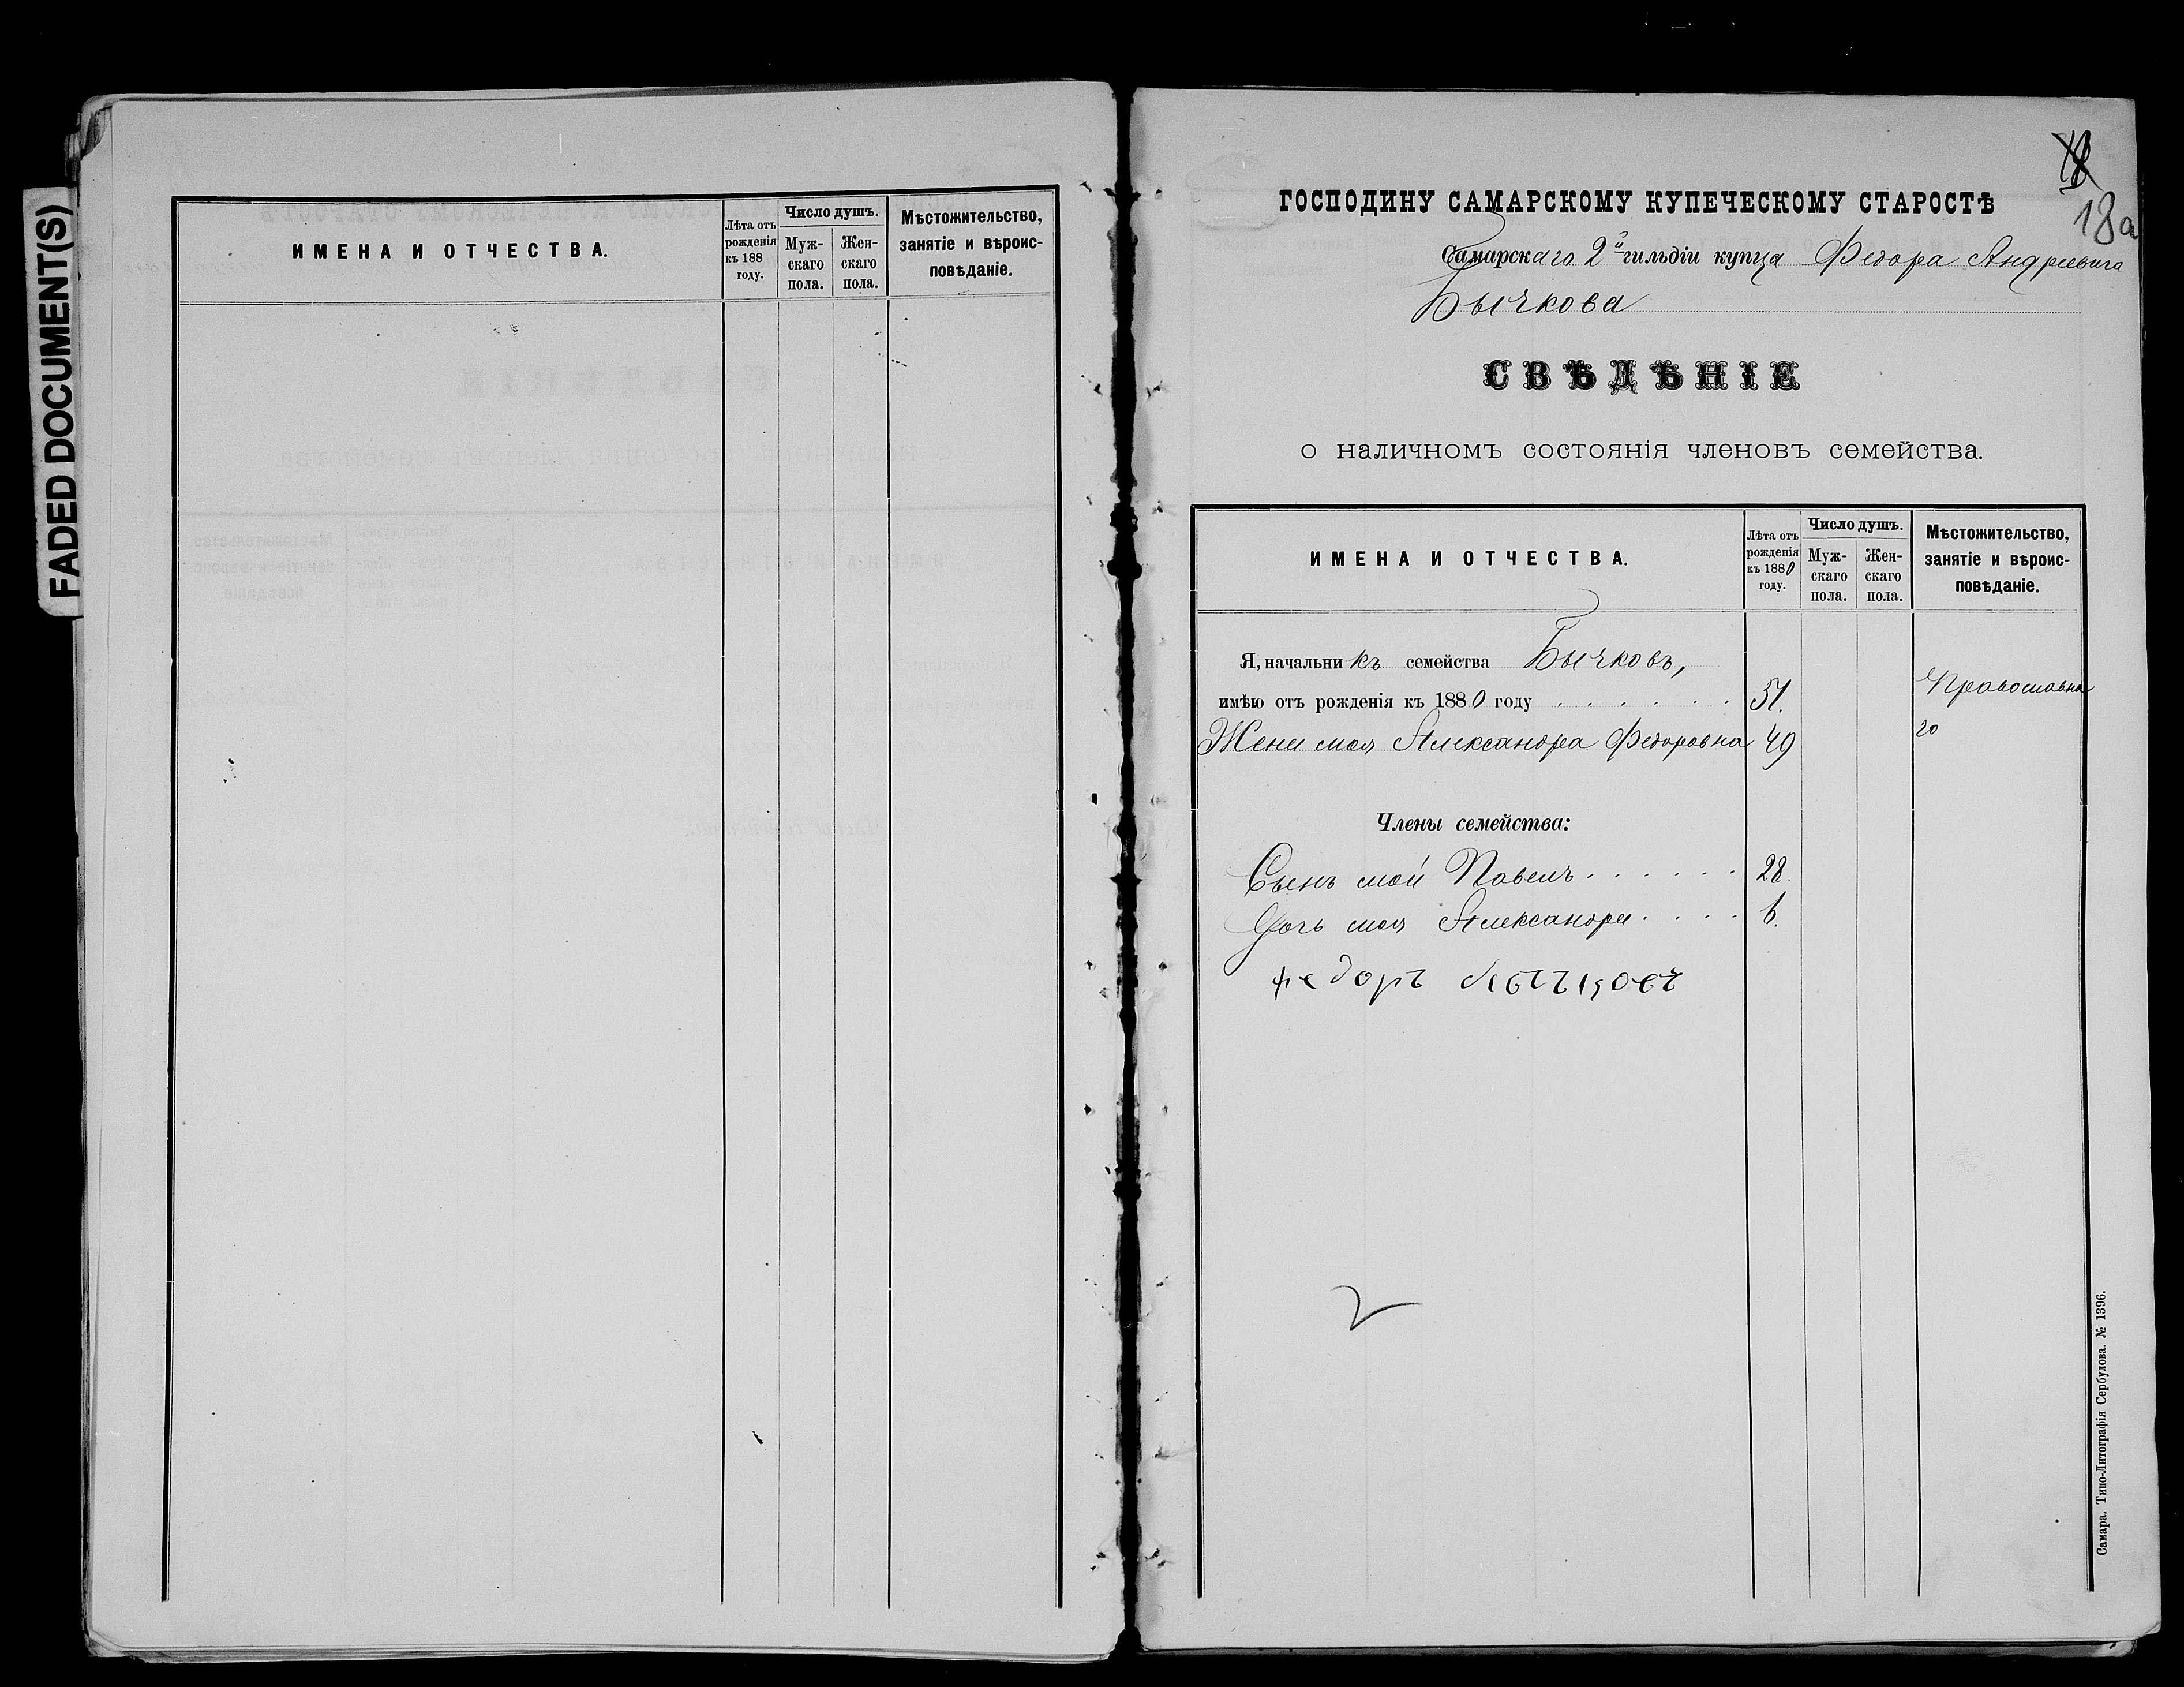 FADED DOCUMENT(S)
ИМЕНА И ОТЧЕСТВА.
Лѣта отъ рожденія къ 188 году.
Число душъ.
Муж-скаго пола.
Жен-скаго пола.
Мѣстожительство, занятіе и вѣроис-повѣданіе.
18а
ГОСПОДИНУ САМАРСКОМУ КУПЕЧЕСКОМУ СТАРОСТѢ
Самарскаго 2й гильдіи купца Федора Андреевича
Бычкова
СВѢДѢНІЕ
о наличномъ состоянія членовъ семейства.
ИМЕНА И ОТЧЕСТВА.
Лѣта отъ рожденія къ 1880 году.
Число душъ.
Муж-скаго пола.
Жен-скаго пола.
Мѣстожительство, занятіе и вѣроис-повѣданіе.
Я, начальникъ семейства Бычковъ,
имѣю отъ рожденія къ 1880 году . . . . . . 51. Православна
Жена моя Александра Федоровна 49 го
Члены семейства:
Сынъ мой Павелъ . . . . . . 28.
Дочь моя Александра . . . . 6.
Федоръ
2
Самара. Типо-Литографія Сербулова. № 1396.